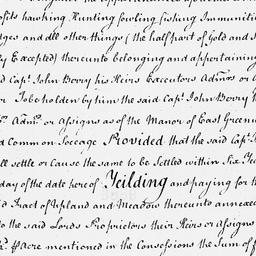 ofits hawking Hunting fowling fishing Immuniti
dges and all other things (the half part of Gold and
y Excepted) thereunto belonging and appertaining
id Capt. John Berry his Heirs Executors Admrs or A
er To be holden by him the said Capt. John Berry h
Admrs or Assigns as of the Manor of East Green
d Common Soccage Provided that the said Capt. J
ll settle or Cause the same to be Settled within Six Ye
day of the date here of Yeilding and paying for th
id Tract of Upland and Meadow thereunto annexed
to the said Lords Proprietors their Heirs or Assigns
Acre mentioned in the Consessions the Sum of f